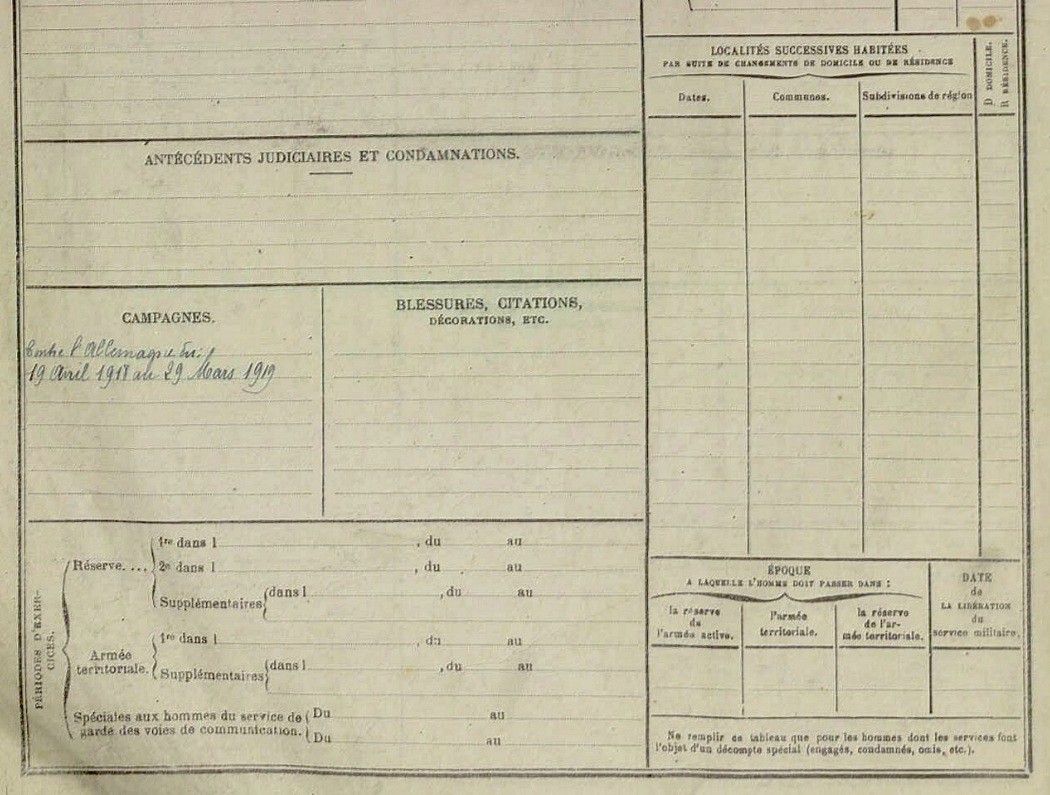 ANTÉCÉDENTS JUDICIAIRES ET CONDAMNATIONS.
CAMPAGNES.
Contre l'Allemagne du:
19 Avril 1918 au 29 Mars 1919
BLESSURES, CITATIONS,
DÉCORATIONS, ETC.
PÉRIODES D'EXER-
CICES.
Réserve. ...
1re dans l , du au
2e dans l , du au
Supplémentaires dans l , du au
Armée
territoriale.
1re dans l , du au
Supplémentaires dans l , du au
Spéciales aux hommes du service de
garde des voies de communication.
Du au
Du au
LOCALITÉS SUCCESSIVES HABITÉES
PAR SUITE DE CHANGEMENTS DE DOMICILE OU DE RÉSIDENCE
Dates.
Communes.
Subdivisions de région
D DOMICILE.
R RÉSIDENCE.
ÉPOQUE
A LAQUELLE L'HOMME DOIT PASSER DANS :
la réserve
de
l'armée active.
l'armée
territoriale.
la réserve
de l'ar-
mée territoriale.
DATE
de
LA LIBÉRATION
du
service militaire.
Ne remplir ce tableau que pour les hommes dont les services font
l'objet d'un décompte spécial (engagés, condamnés, omis, etc.).